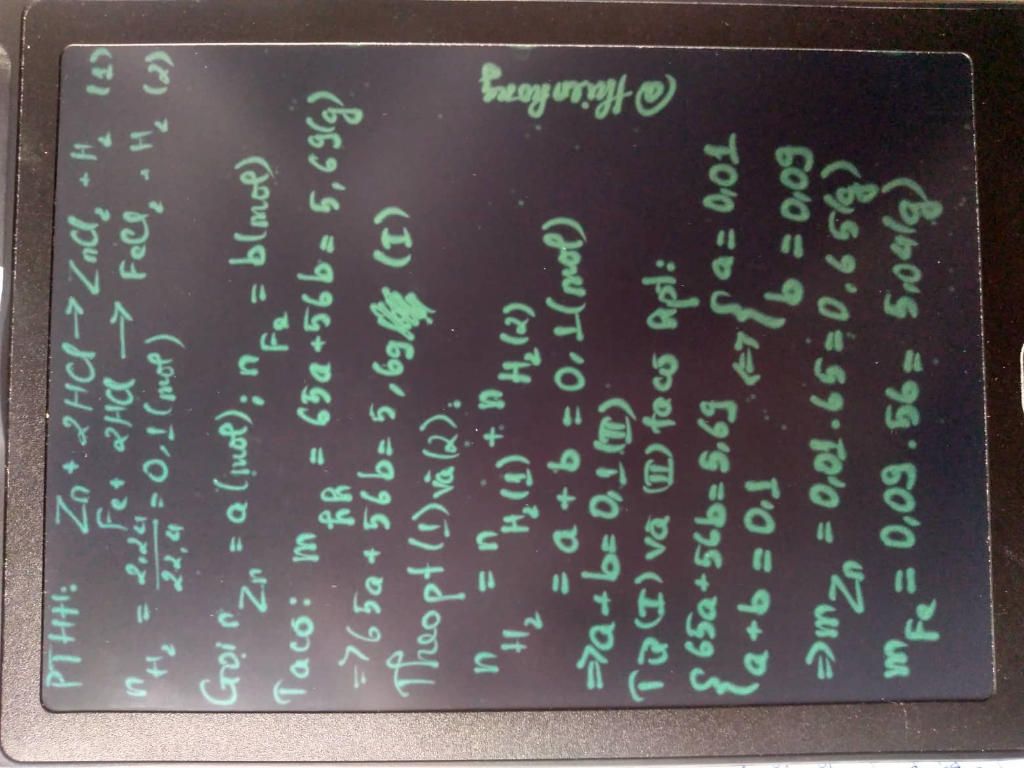 PTHH: Zn + 2HCl → ZnCl₂ + H₂ (1)
Fe + 2HCl → FeCl₂ + H₂ (2)
n H₂ = 2,24/22,4 = 0,1 (mol)
Gọi n Zn = a (mol); n Fe = b (mol)
Ta có: m hh = 65a + 56b = 5,69 (g)
=> 65a + 56b = 5,69 (I)
Theo pt (1) và (2):
n H₂ = n H₂(1) + n H₂(2)
= a + b = 0,1 (mol)
=> a + b = 0,1 (II)
Từ (I) và (II) ta có hpt:
{ 65a + 56b = 5,69 <=> { a = 0,01
{ a + b = 0,1 { b = 0,09
=> m Zn = 0,01 . 65 = 0,65 (g)
m Fe = 0,09 . 56 = 5,04 (g)